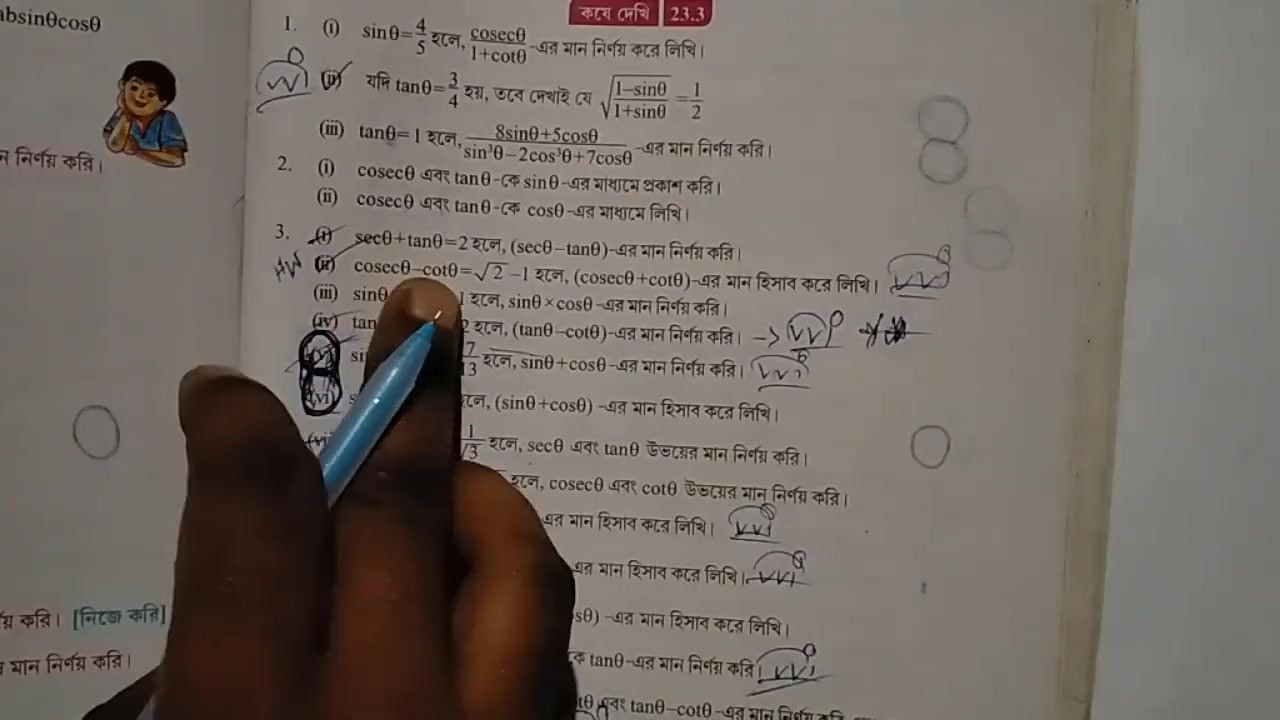 absinθcosθ
কষে দেখি 23.3
1. (i) sinθ=4/5 হলে, cosecθ/1+cotθ -এর মান নির্ণয় করে লিখি।
(ii) যদি tanθ=3/4 হয়, তবে দেখাই যে √1−sinθ/1+sinθ =1/2
(iii) tanθ=1 হলে, 8sinθ+5cosθ/sin³θ−2cos³θ+7cosθ -এর মান নির্ণয় করি।
নির্ণয় করি।
2. (i) cosecθ এবং tanθ-কে sinθ-এর মাধ্যমে প্রকাশ করি।
(ii) cosecθ এবং tanθ-কে cosθ-এর মাধ্যমে লিখি।
3. (i) secθ+tanθ=2 হলে, (secθ−tanθ)-এর মান নির্ণয় করি।
(ii) cosecθ−cotθ=√2−1 হলে, (cosecθ+cotθ)-এর মান হিসাব করে লিখি।
(iii) sinθ 1 হলে, sinθ×cosθ-এর মান নির্ণয় করি।
(iv) tan 2 হলে, (tanθ−cotθ)-এর মান নির্ণয় করি।
(v) si 7/13 হলে, sinθ+cosθ-এর মান নির্ণয় করি।
(vi) s হলে, (sinθ+cosθ) -এর মান হিসাব করে লিখি।
1/√3 হলে, secθ এবং tanθ উভয়ের মান নির্ণয় করি।
হলে, cosecθ এবং cotθ উভয়ের মান নির্ণয় করি।
এর মান হিসাব করে লিখি।
এর মান হিসাব করে লিখি।
sθ) -এর মান হিসাব করে লিখি।
য় করি। [নিজে করি]
কে tanθ-এর মান নির্ণয় করি
মান নির্ণয় করি।
tθ এবং tanθ−cotθ-এর মান নির্ণয় করি